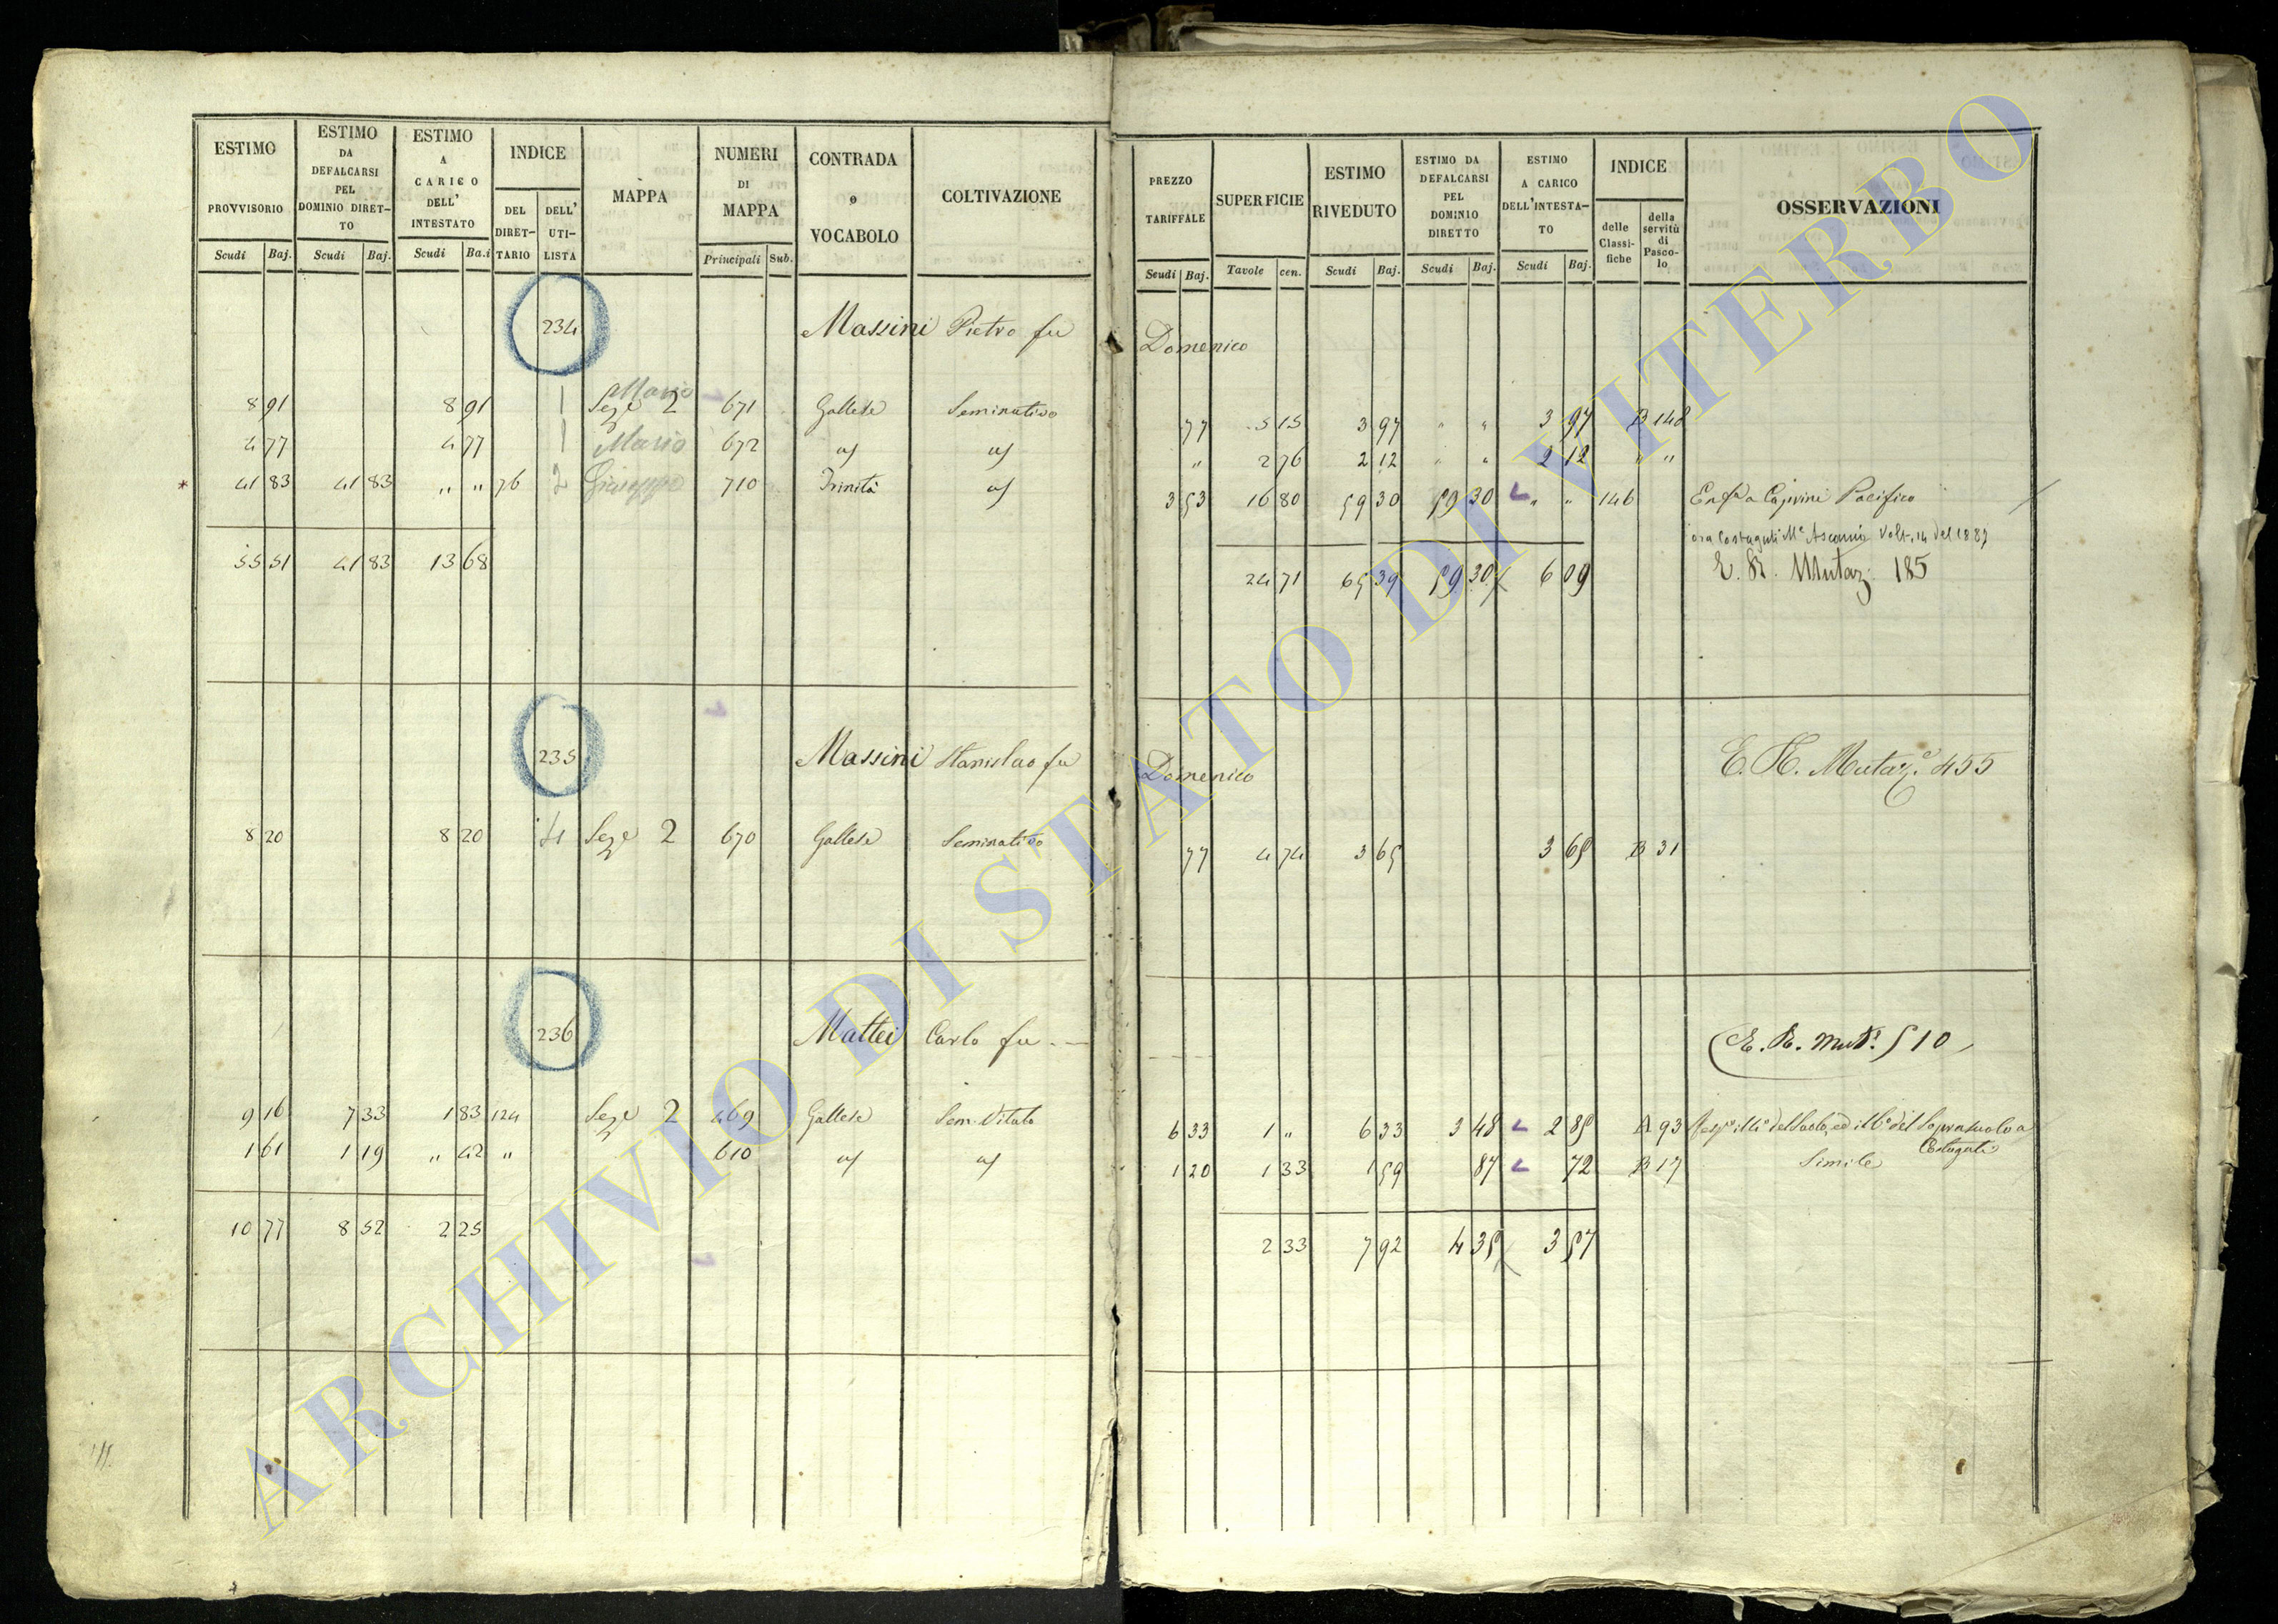 ESTIMO PROVVISORIO Scudi Baj.
ESTIMO DA DEFALCARSI PEL DOMINIO DIRET-TO Scudi Baj.
ESTIMO A CARICO DELL' INTESTATO Scudi Ba.i
INDICE DEL DIRET-TARIO DELL' UTI-LISTA
MAPPA
NUMERI DI MAPPA Principali Sub.
CONTRADA o VOCABOLO
COLTIVAZIONE
PREZZO TARIFFALE Scudi Baj.
SUPERFICIE Tavole cen.
ESTIMO RIVEDUTO Scudi Baj.
ESTIMO DA DEFALCARSI PEL DOMINIO DIRETTO Scudi Baj.
ESTIMO A CARICO DELL'INTESTA-TO Scudi Baj.
INDICE delle Classi-fiche della servitù di Pasco-lo
OSSERVAZIONI
234 Massini Pietro fu Domenico
Mario
8 91 8 91 1 Seze 2 671 Gallese Seminativo 77 5 15 3 97 " " 3 97 B 148
4 77 4 77 1 Mario 672 id id " 2 76 2 12 " " 2 12 " "
* 41 83 41 83 " " 76 2 Giuseppe 710 Trinità id 3 53 16 80 59 30 59 30 " " 146 Enfa a Caprini Pacifico
ora Costaguti Me Ascanio Volt. 14 del 1887
55 51 41 83 13 68 24 71 65 39 59 30 6 09 E. R. Mutaz. 185
235 Massini Stanislao fu Domenico E. R. Mutaz.e 455
8 20 8 20 4 Seze 2 670 Gallese Seminativo 77 4 74 3 65 3 65 B 31
236 Mattei Carlo fu --- E. R. Mut. 510
9 16 7 33 1 83 124 Seze 2 469 Gallese Sem. Vitato 6 33 1 " 6 33 3 48 2 85 A 93 del Suolo, ed del Soprasuolo a
Costaguti
1 61 1 19 " 42 " 610 id id 1 20 1 33 1 59 87 72 B 17 Simile
10 77 8 52 2 25 2 33 7 92 4 35 3 57
ARCHIVIO DI STATO DI VITERBO